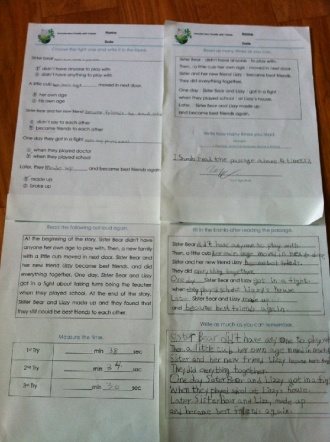 Name
Date
Choose the right one and write it in the blank.
Sister Bear
didn't have anyone to play with
didn't have anything to play with
A little cub her own age moved in next door.
her own age
his own age
Sister Bear and her new friend
didn't say to each other
became best friends to each other
One day they got in a fight
when they played doctor
when they played school
Later, they made up and became best friends again.
made up
broke up
Name
Date
Read as many times as you can.
Sister Bear didn't have anyone to play with.
Then, a little cub her own age moved in next door.
Sister and her new friend Lizzy became best friends.
They did everything together.
One day Sister Bear and Lizzy got in a fight
when they played school at Lizzy's house.
Later, Sister Bear and Lizzy made up
and became best friends again.
Write how many times you read.
Read the following out loud again.
At the beginning of the story, Sister Bear didn't have
anyone her own age to play with. Then, a new family
with a little cub moved in next door. Sister Bear and
her new friend Lizzy became best friends, and did
everything together. One day, Sister Bear and Lizzy
got in a fight about taking turns being the teacher
when they played school. At the end of the story,
Sister Bear and Lizzy made up and they found that
they still could be best friends to each other.
Measure the time.
1st Try min 38 sec
2nd Try min 34 sec
3rd Try min 30 sec
Fill in the blanks after reading the passage.
Sister Bear didn't have anyone to play with
Then, a little cub her own age moved in next door
Sister and her new friend Lizzy became best friends.
They did everything together
One day Sister Bear and Lizzy got in a fight
when they played school at Lizzy's house
Later Sister Bear and Lizzy made up
and became best friends again
Write as much as you can remember.
Sister Bear didn't have anyone to play
Then, a little cub her own age moved in
Sister and her new friend Lizzy became best
They did everything together
One day Sister Bear and Lizzy got in a fight
When they played school at Lizzy's house.
Later Sister bear and Lizzy made up
and became best friends again.